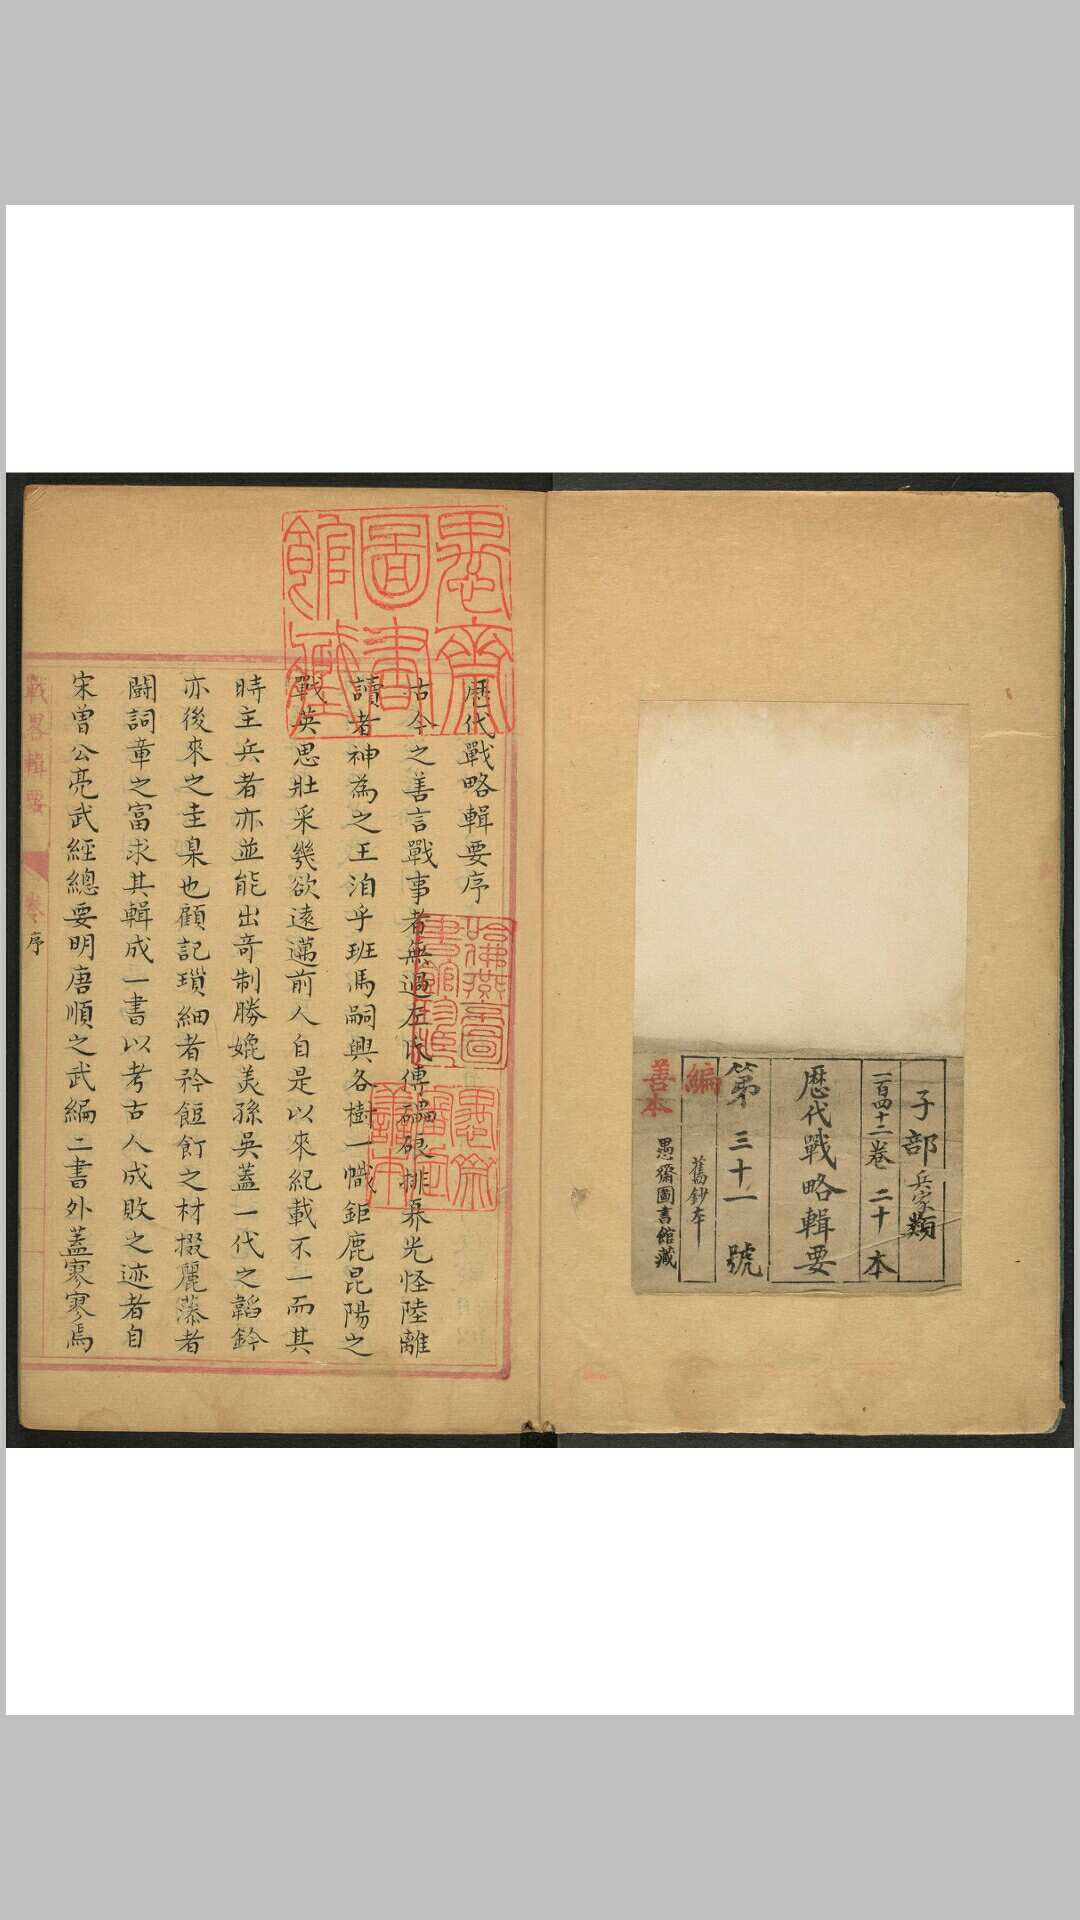 子部兵家類
一百四十二卷 二十本
歷代戰略輯要
第三十一號
編 舊鈔本
善本 愚齋圖書館藏
愚齋圖書館藏
歷代戰略輯要序
古今之善言戰事者無過左氏傳礧硠排奡光怪陸離
讀者神為之王洎乎班馬嗣興各樹一幟鉅鹿昆陽之
戰英思壯采幾欲遠邁前人自是以來紀載不一而其
時主兵者亦並能出奇制勝媲美孫吳蓋一代之韜鈐
亦後來之圭臬也顧記瑣細者矜飣之材掇麗藻者
鬪詞章之富求其輯成一書以考古人成敗之迹者自
宋曾公亮武經總要明唐順之武編二書外蓋寥寥焉
戰畧輯要 卷 序
哈佛燕圖書館珍
愚齋審定善本